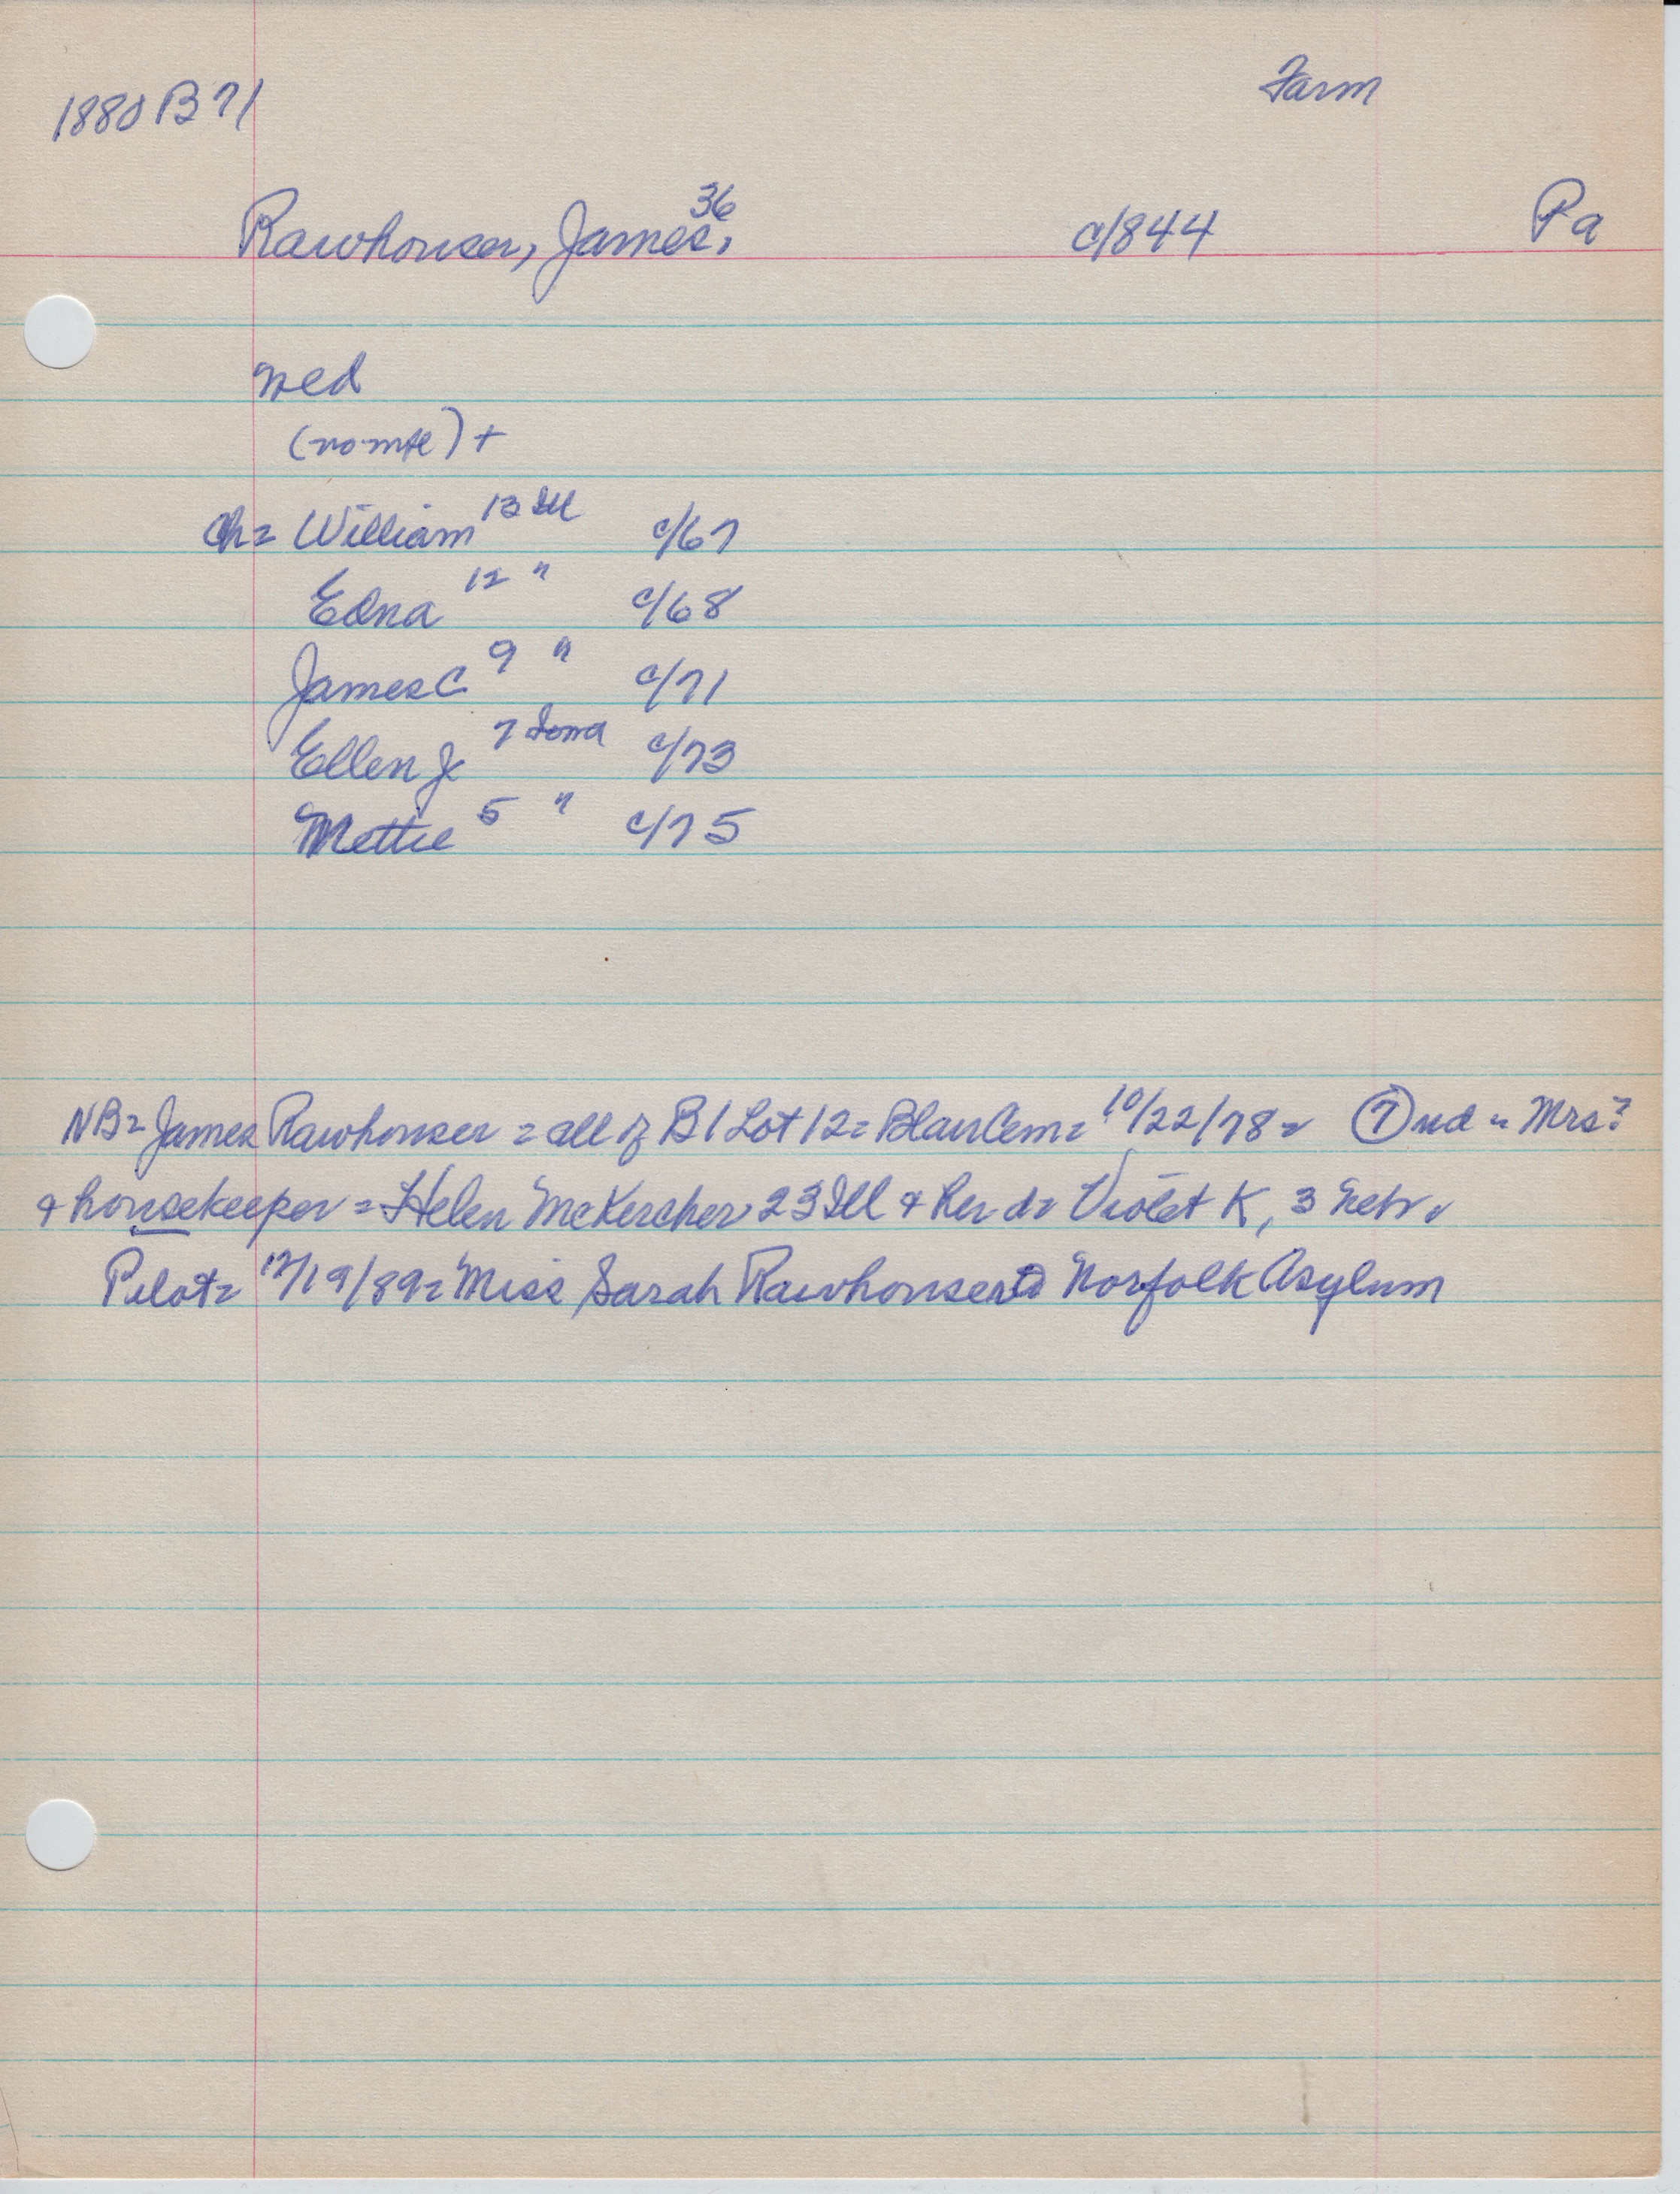 1880 B 71
Farm
Rawhouser, James, 36 c/844 Pa
wed
(no mfe) +
Ch= William 13 Ill c/67
Edna 12 " c/68
James C 9 " c/71
Ellen J 7 Iowa c/73
Mettie 5 " c/75
NB= James Rawhouser = all of B1 Lot 12= Blair Cem= 10/22/78= ? ud " Mrs?
& housekeeper = Helen McKercher 23 Ill & her d= Violet K, 3 Nebr.
Pilot= 12/19/89= Miss Sarah Rawhouser to Norfolk Asylum